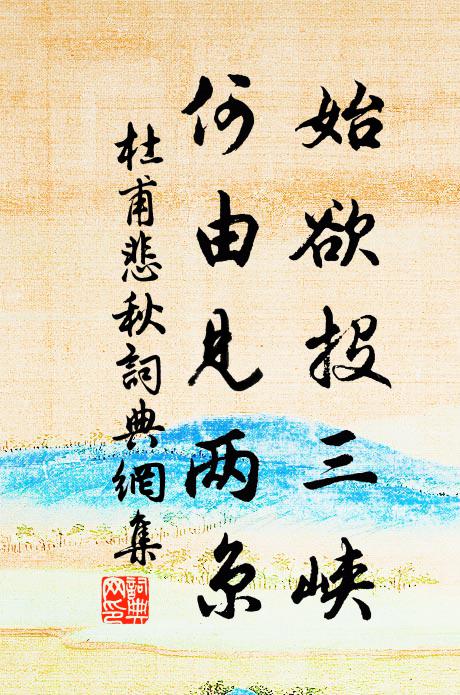 始欲投三峡
何由见两京
杜甫悲秋詞典網集
詞典